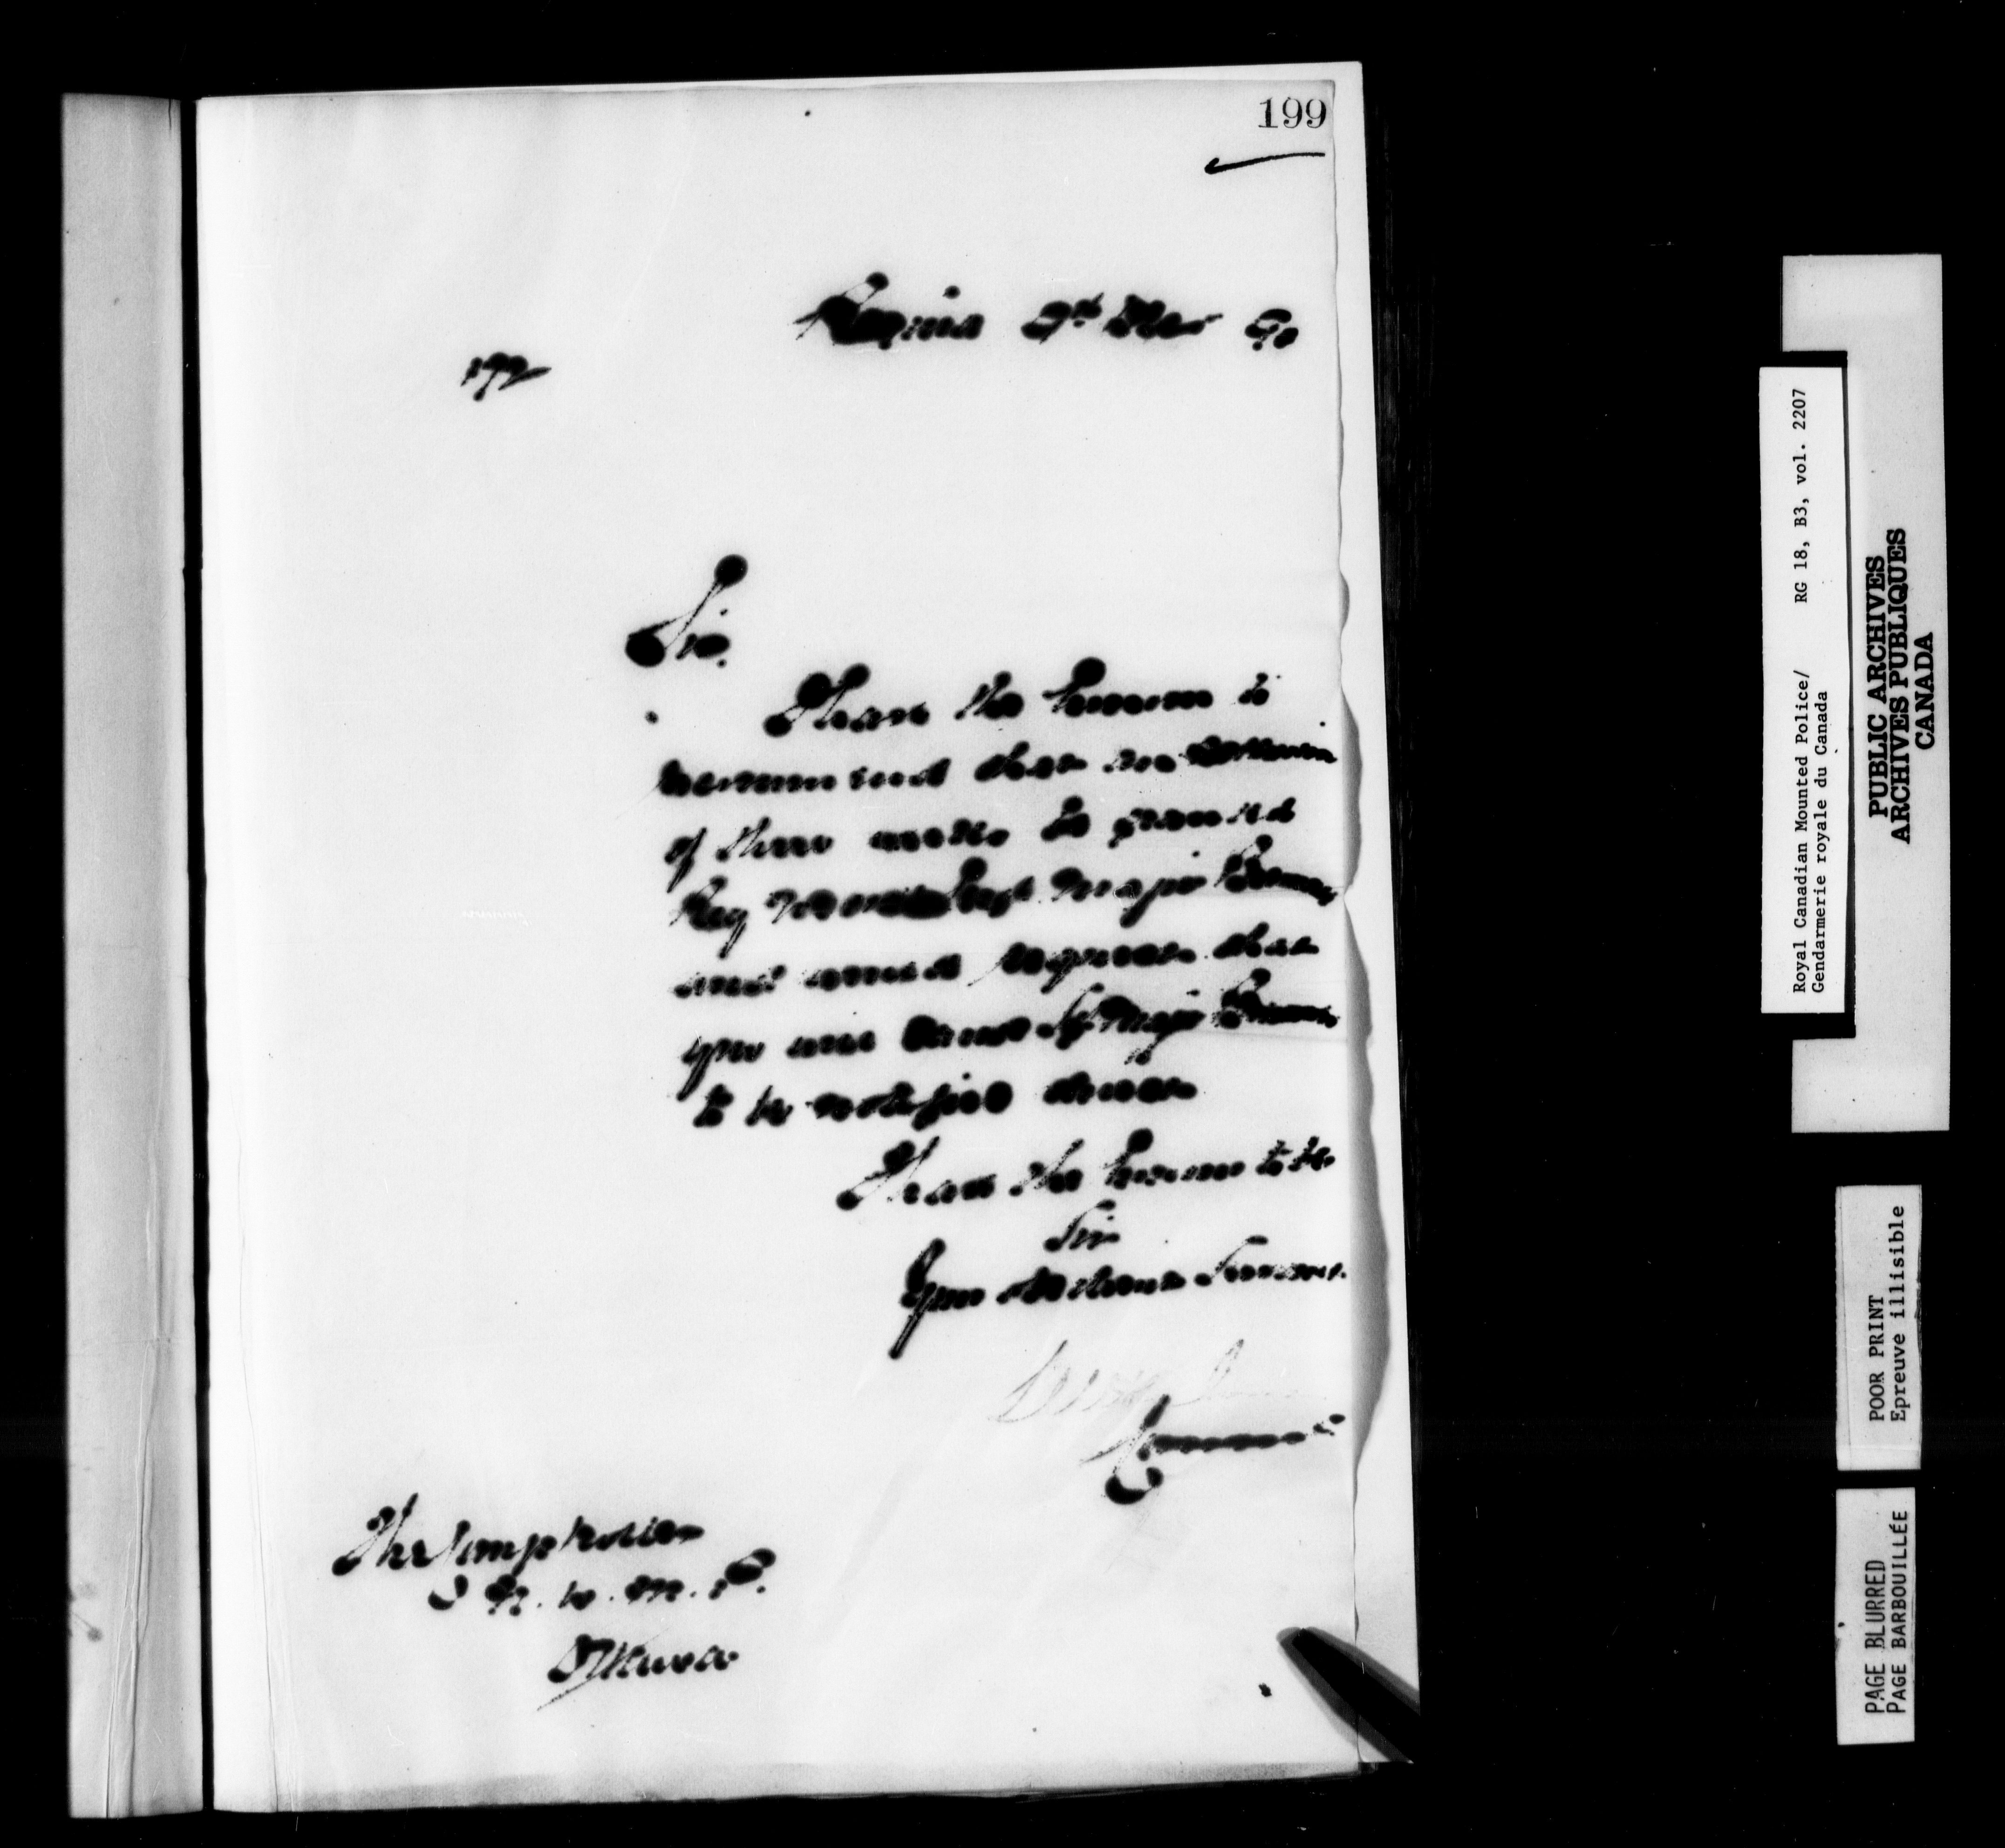 199
Regina 9th 90
192
Sir.
I have the honour to
recommend that an extension
of three weeks be granted
Reg No Sergt. Major
and would request that
you will cause Sgt Major
to be notified
I have the honour to be
Sir
Your obedient Servant.
Commr
The Comptroller
N. W. M. P.
Ottawa
Royal Canadian Mounted Police/ RG 18, B3, vol. 2207
Gendarmerie royale du Canada
PUBLIC ARCHIVES
ARCHIVES PUBLIQUES
CANADA
POOR PRINT
Epreuve illisible
PAGE BLURRED
PAGE BARBOUILLÉE